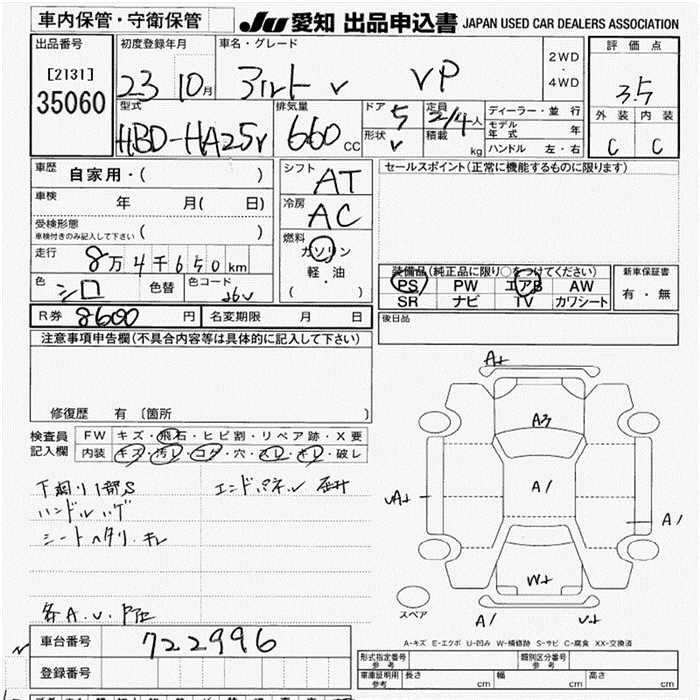 車内保管・守衛保管
JU 愛知 出品申込書 JAPAN USED CAR DEALERS ASSOCIATION
出品番号
[2131]
35060
初度登録年月
23 10月
車名・グレード
アルト V VP
2WD
・
4WD
評価点
3.5
外装 内装
C C
型式
HBD-HA25V
排気量
660 CC
ドア 5
形状 V
定員 2/4人
積載 kg
ディーラー・並行
モデル年式 年
ハンドル 左・右
車歴
自家用・( )
車検
年 月( 日)
受検形態
車検付きのみ記入して下さい ( )
走行
8万4千650km
色
シロ
色替
色コード
26V
シフト
AT
冷房
AC
燃料
ガソリン
軽・油
( )
セールスポイント(正常に機能するものに限ります)
装備品(純正品に限り○をつけてください)
PS PW エアB AW
SR ナビ TV カワシート
新車保証書
有・無
R券 8600 円
名変期限 月 日
後日品
注意事項申告欄(不具合内容等は具体的に記入して下さい)
修復歴 有 〔箇所 〕
検査員
記入欄
FW キズ・飛石・ヒビ割・リペア跡・X要
内装 キズ・汚レ・コゲ・穴・スレ・キレ・破レ
下廻り1部S
ハンドルハゲ
シートヘタリ・キレ
エンドパネル
各A.U.
A+
A3
A1
A+
A1
W+
A1
U+
スペア
A-キズ E-エクボ U-凹み W-補修跡 S-サビ C-腐食 XX-交換済
車台番号
722996
登録番号
型式指定番号
参考
類別区分番号
参考
車庫証明用
参考
長さ cm
幅 cm
高さ cm